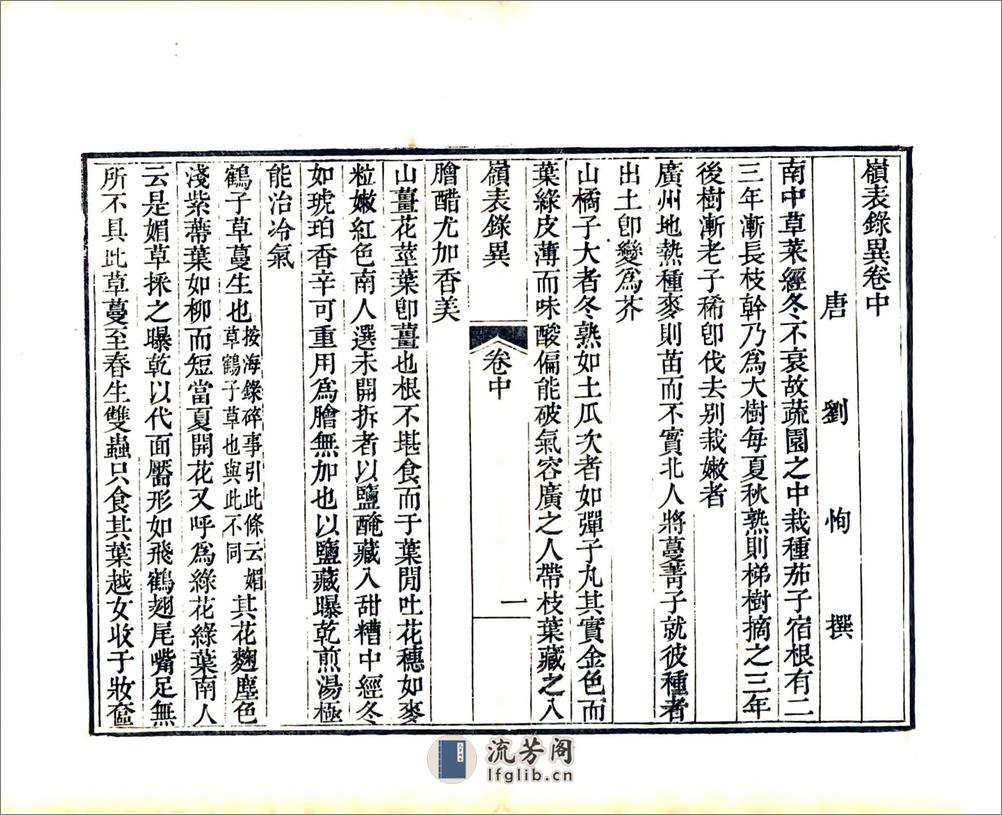 嶺表錄異卷中
唐劉恂撰
南中草菜經冬不衰故蔬園之中栽種茄子宿根有二
三年漸長枝幹乃爲大樹每夏秋熟則梯樹摘之三年
後樹漸老子稀卽伐去別栽嫩者
廣州地熱種麥則苗而不實北人將蔓菁子就彼種者
出土卽變爲芥
山橘子大者冬熟如土瓜次者如彈子丸其實金色而
葉綠皮薄而味酸偏能破氣容廣之人帶枝葉藏之入
嶺表錄異
卷中
一
膾醋尤加香美
山薑花莖葉卽薑也根不堪食而于葉閒吐花穗如麥
粒嫩紅色南人選未開拆者以鹽醃藏入甜糟中經冬
如琥珀香辛可重用爲膾無加也以鹽藏曝乾煎湯極
能治冷氣
鶴子草蔓生也按海錄碎事引此條云媚草鶴子草也與此不同其花麴塵色
淺紫蔕葉如柳而短當夏開花又呼爲綠花綠葉南人
云是媚草採之曝乾以代面靨形如飛鶴翅尾嘴足無
所不具此草蔓至春生雙蟲只食其葉越女收于妝奩
流芳阁
lfglib.cn